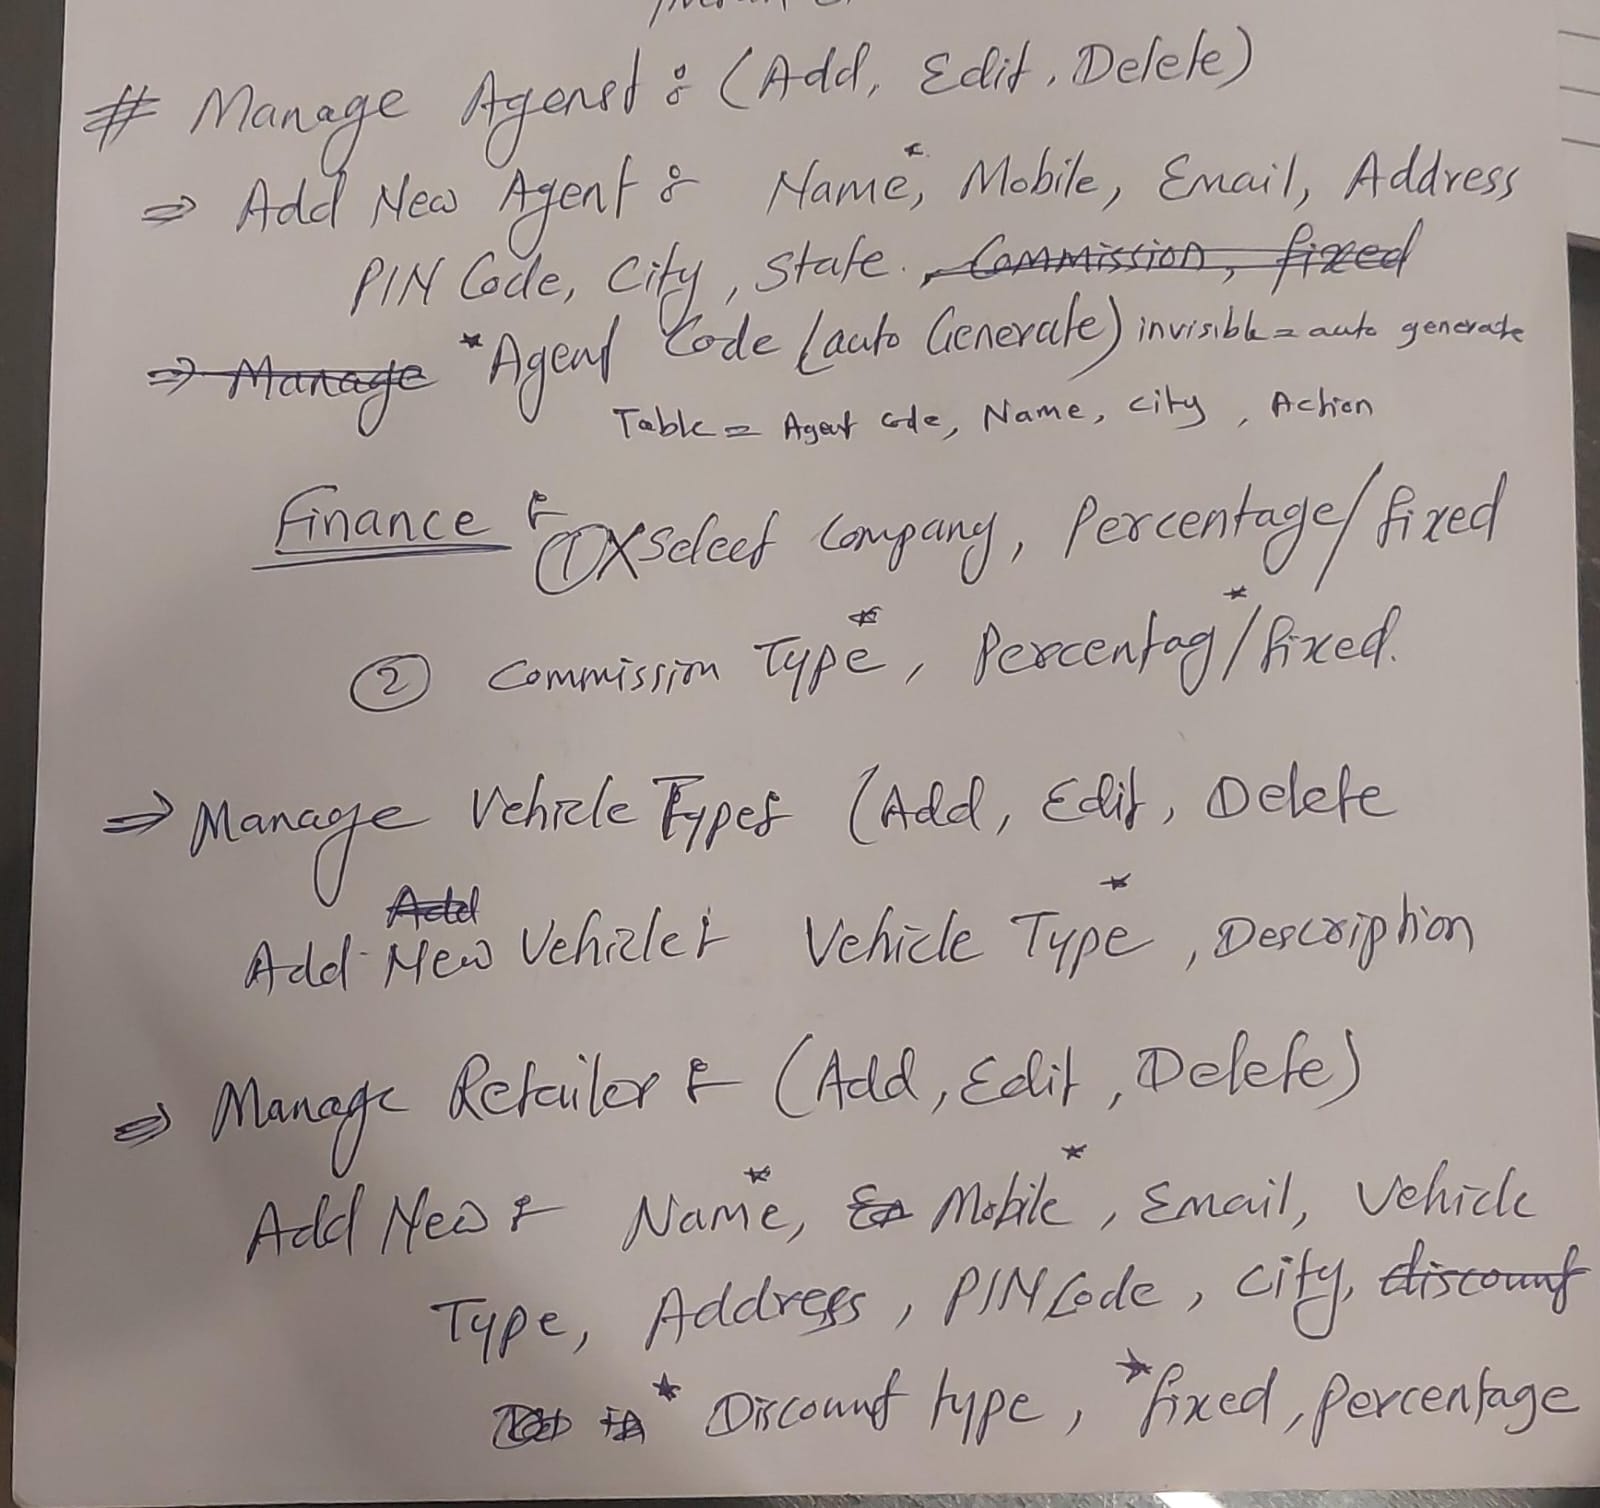 # Manage Agenst : (Add, Edit, Delete)
⇒ Add New Agent : Name*, Mobile, Email, Address
PIN Code, City, State. , Commission, fixed
⇒ Manage *Agent Code (auto Generate) invisible = auto generate
Table = Agent code, Name, city, Action
Finance : ① X Select Company, Percentage/fixed
② Commission Type*, Percentag*/fixed.
⇒ Manage Vehicle Types (Add, Edit, Delete
Add
Add New Vehicle : Vehicle Type*, Description
⇒ Manage Retailer : (Add, Edit, Delete)
Add New : Name*, Mobile*, Email, Vehicle
Type, Address, PIN Code, City, discount
* Discount type, *fixed, percentage